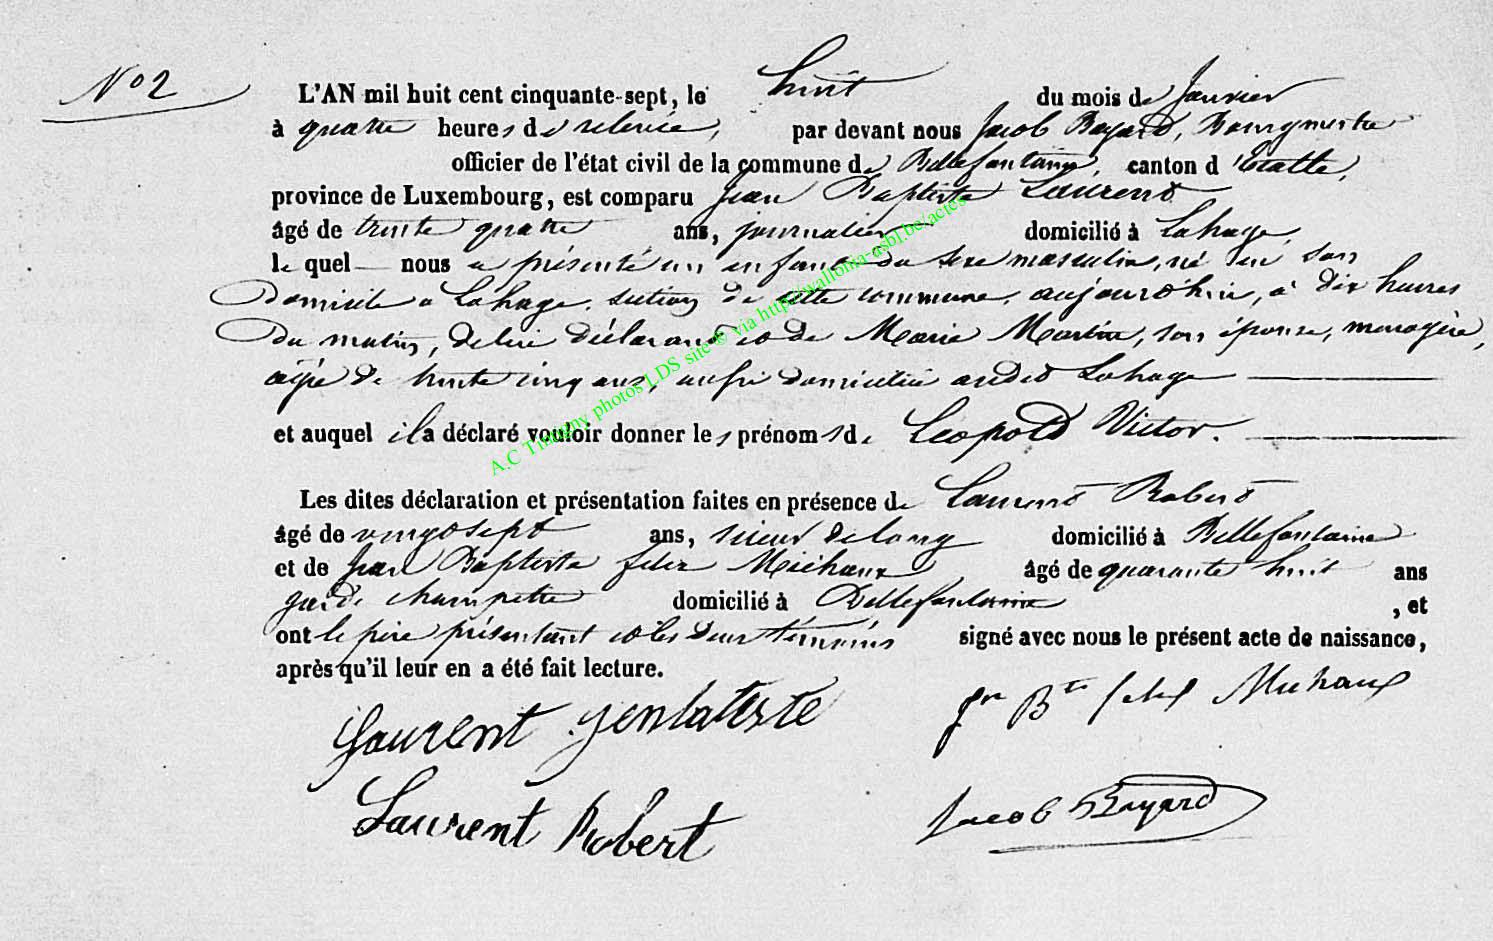 No 2
L'AN mil huit cent cinquante-sept, le huit du mois de Janvier
à quatre heures de relevée, par devant nous Jacob Bayard, Bourgmestre
officier de l'état civil de la commune de Bellefontaine, canton d'Etalle,
province de Luxembourg, est comparu Jean Baptiste Laurent
âgé de trente quatre ans, journalier domicilié à Lahage,
le quel nous a présenté un enfant du sexe masculin, né en son
domicile à Lahage, section de cette commune, aujourd'hui, à dix heures
du matin, de lui déclarant et de Marie Martine, son épouse, menagère,
agée de trente cinq ans, aussi domiciliée audit Lahage
et auquel il a déclaré vouloir donner les prénoms de Léopold Victor.
Les dites déclaration et présentation faites en présence de Laurent Robert
âgé de vingt sept ans, scieur de long domicilié à Bellefontaine
et de Jean Baptiste felix Michaux âgé de quarante huit ans
garde champetre domicilié à Bellefontaine , et
ont le père présentant et les deux témoins signé avec nous le présent acte de naissance,
après qu'il leur en a été fait lecture.
Laurent Jenbatiste Jn Bte felix Michaux
Laurent Robert Jacob Bayard
A.C Tintigny photos LDS site © via http://wallonia-asbl.be/actes